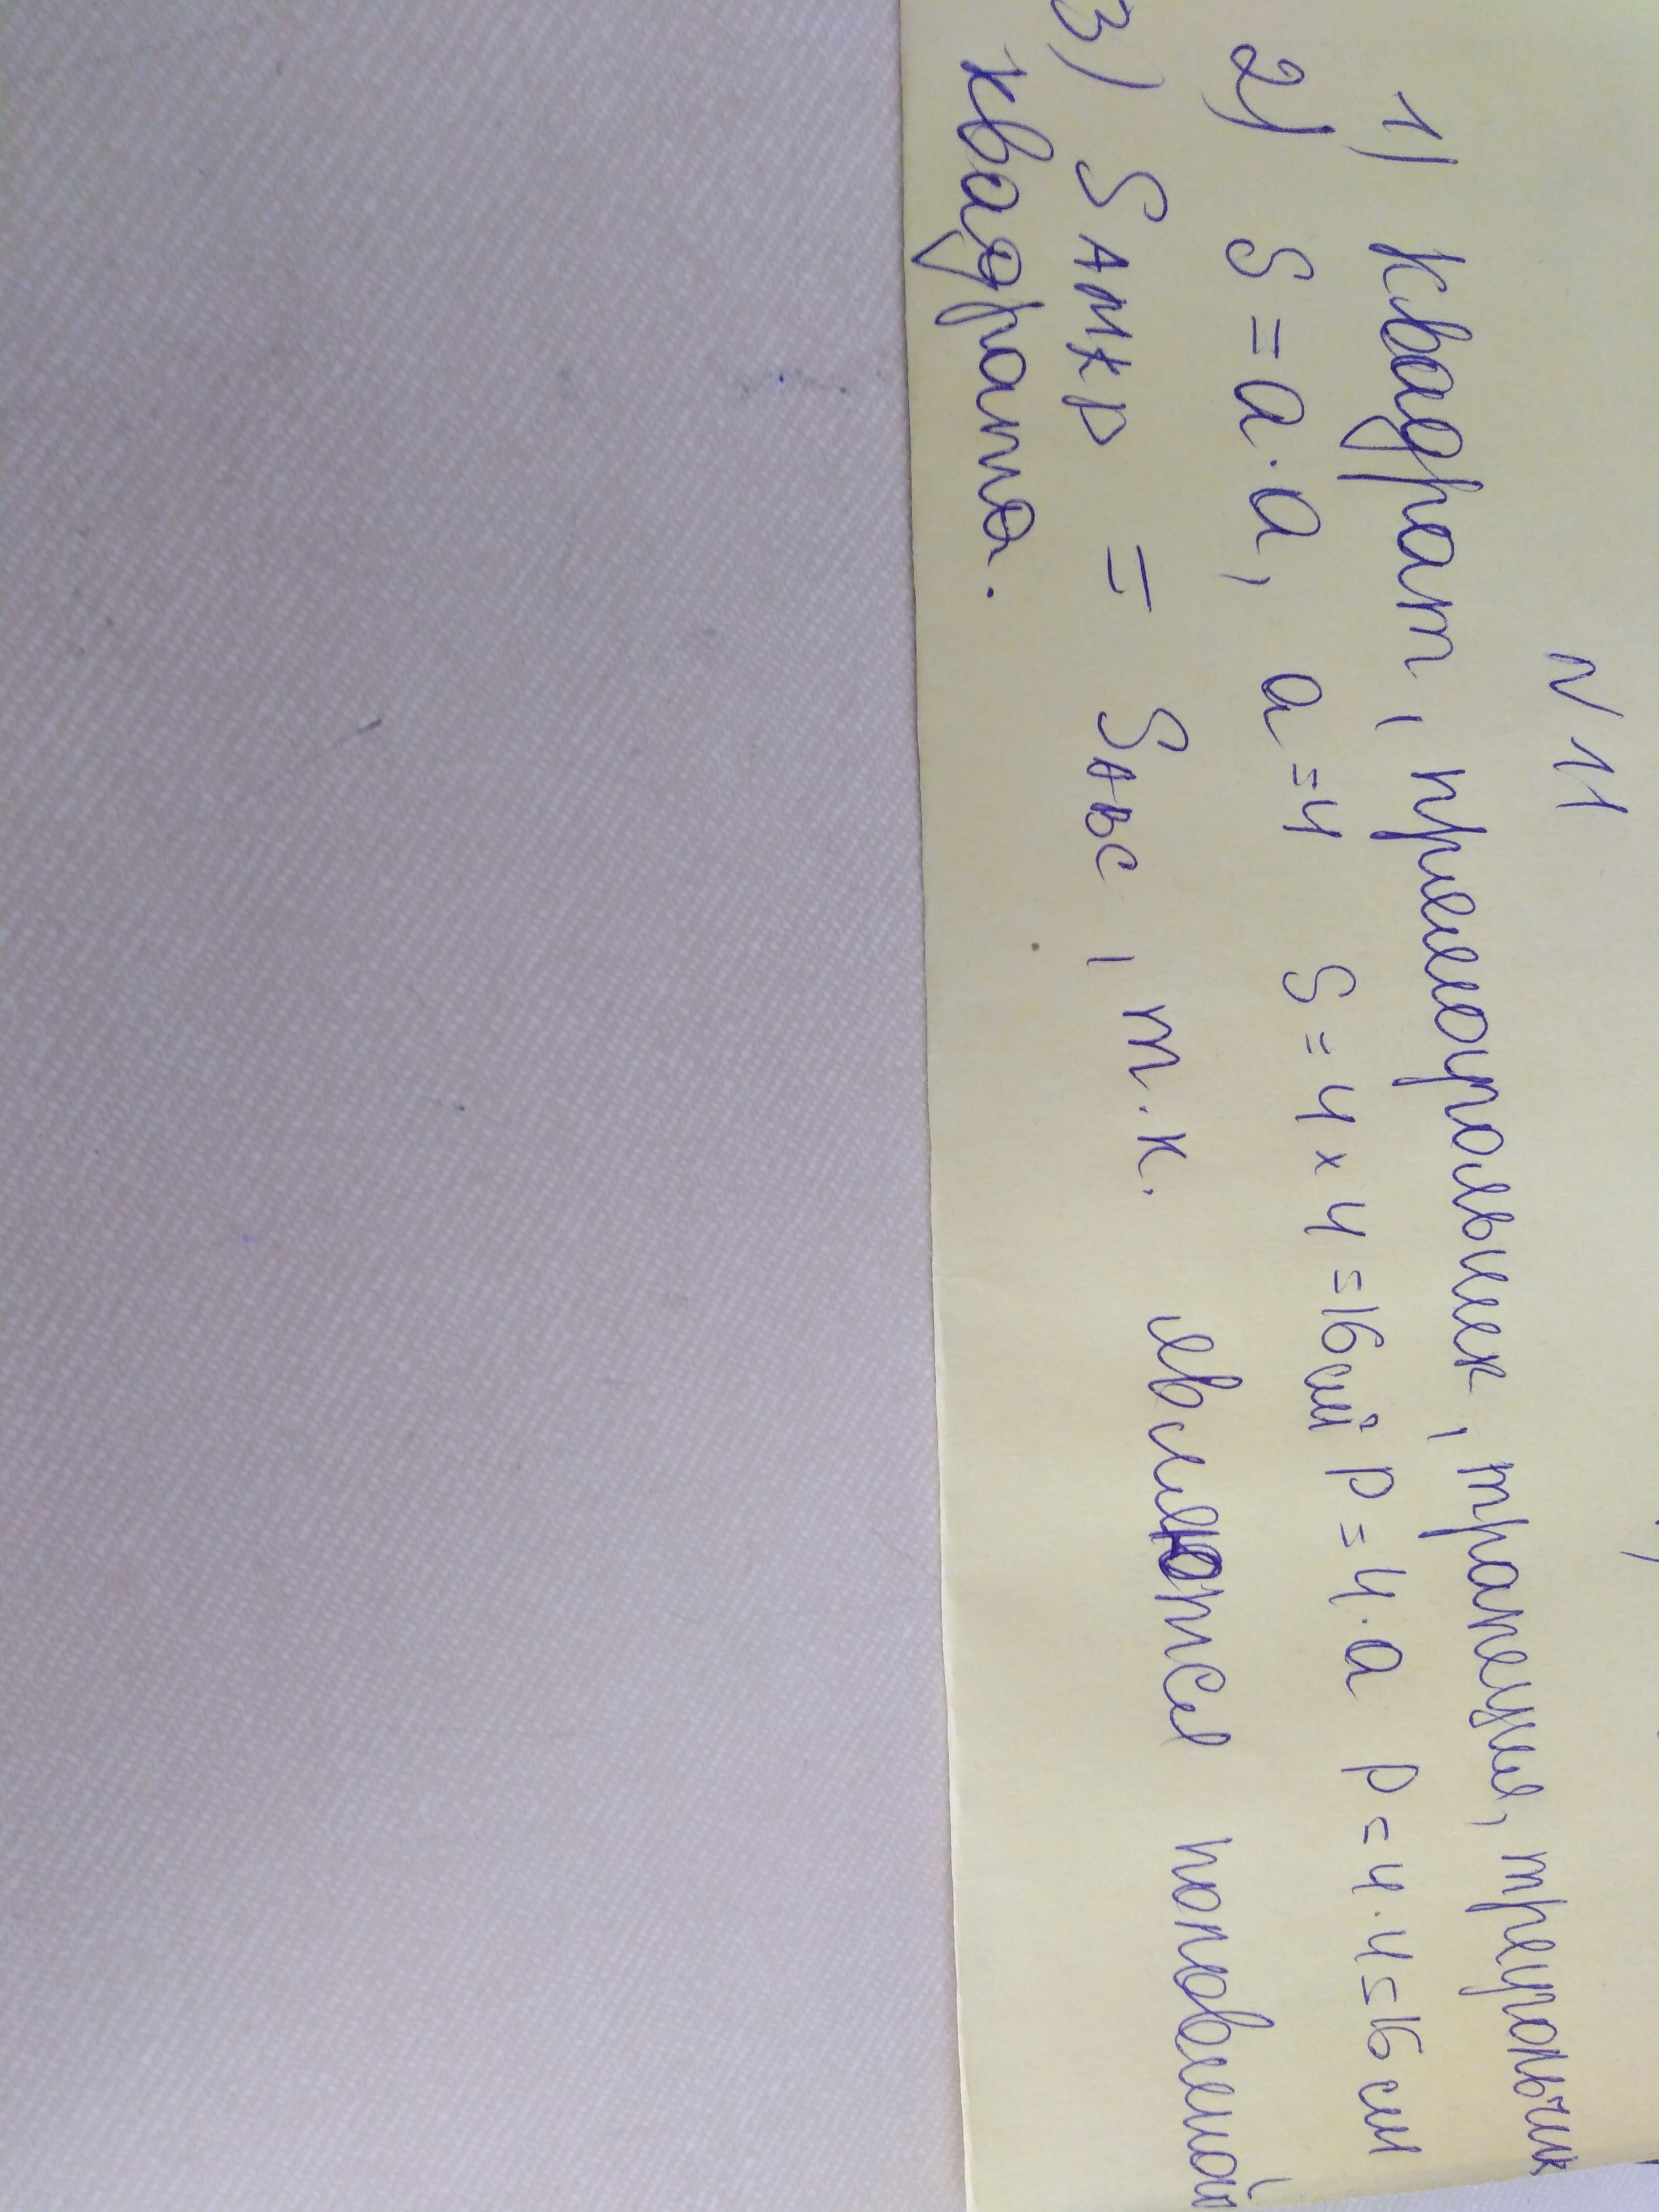 N 11
1) Квадрат, прямоугольник, трапеция, треугольник
2) S = a · a, a = 4 S = 4 × 4 = 16 см² P = 4 · a P = 4 · 4 = 16 см
3) S AMKD = S ABC, т.к. являются половиной
квадрата.